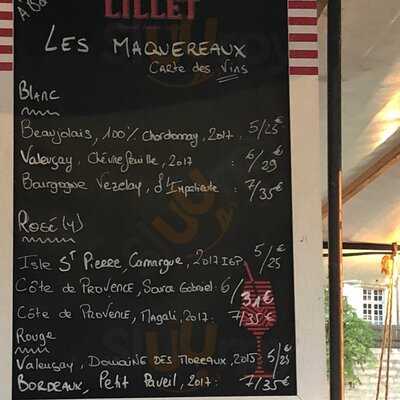 LILLET
Les Maquereaux
Carte des Vins
Blanc
Beaujolais, 100% Chardonnay, 2017. 5/25€
Valençay, Chèvrefeuille, 2017 : 6/29€
Bourgogne Vezelay, l'Impatiente : 7/35€
Rosé (4)
Isle St Pierre, Camargue, 2017 IGP 5/25€
Côte de Provence, Sara Gabriel: 6/31€
Côte de Provence, Magali, 2017: 7/35€
Rouge
Valençay, Domaine des Moreaux, 2015: 5/25€
Bordeaux, Petit Paveil, 2017: 7/35€